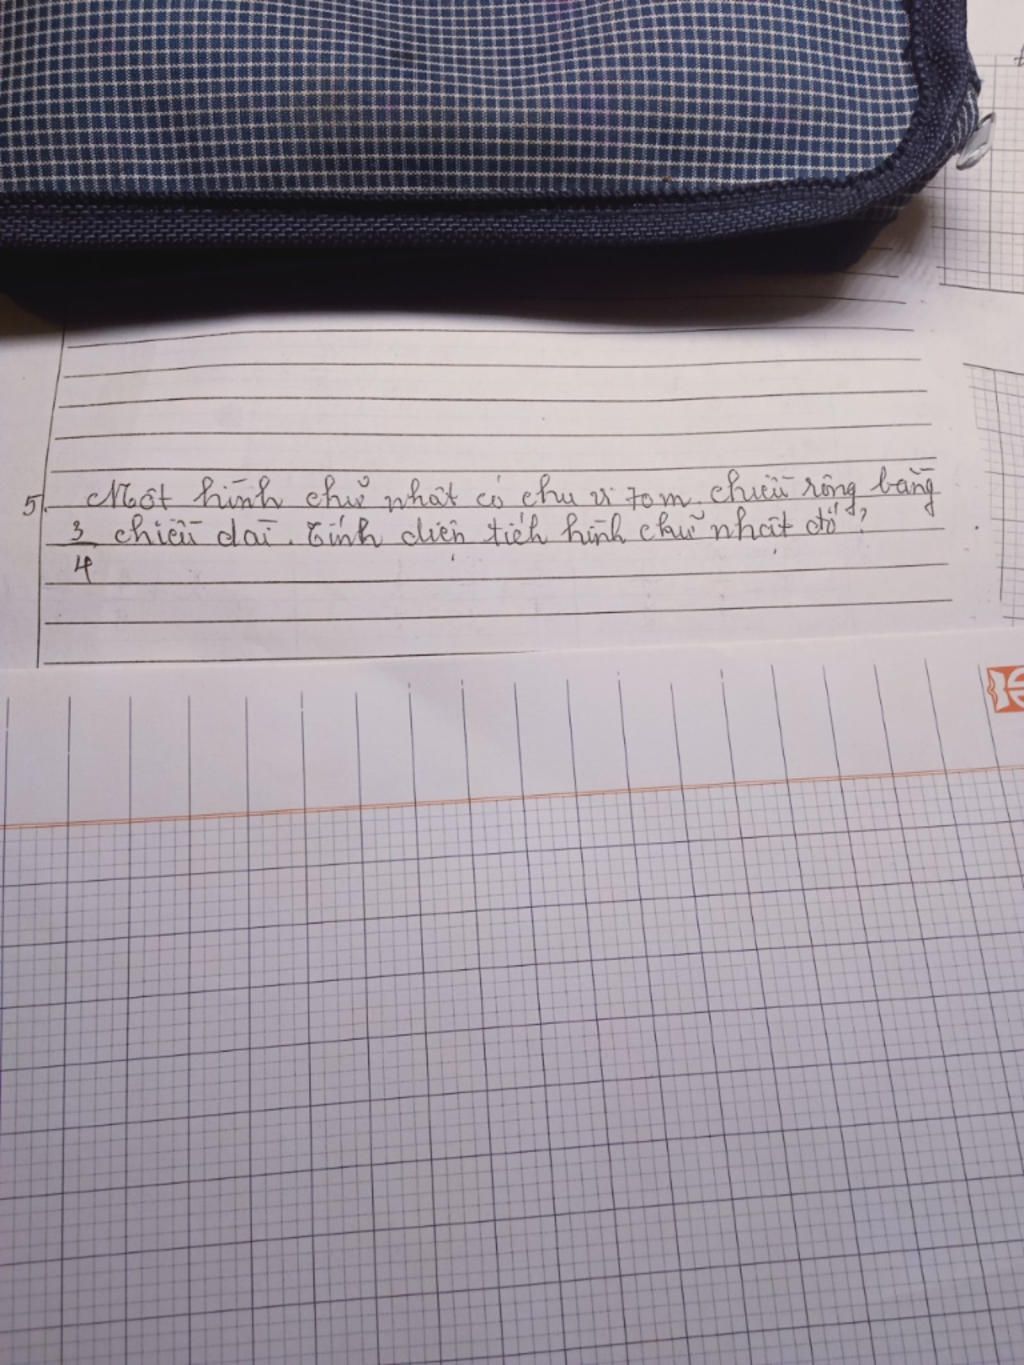 5. Một hình chữ nhật có chu vi 70m. chiều rộng bằng
3/4 chiều dài. Tính diện tích hình chữ nhật đó?